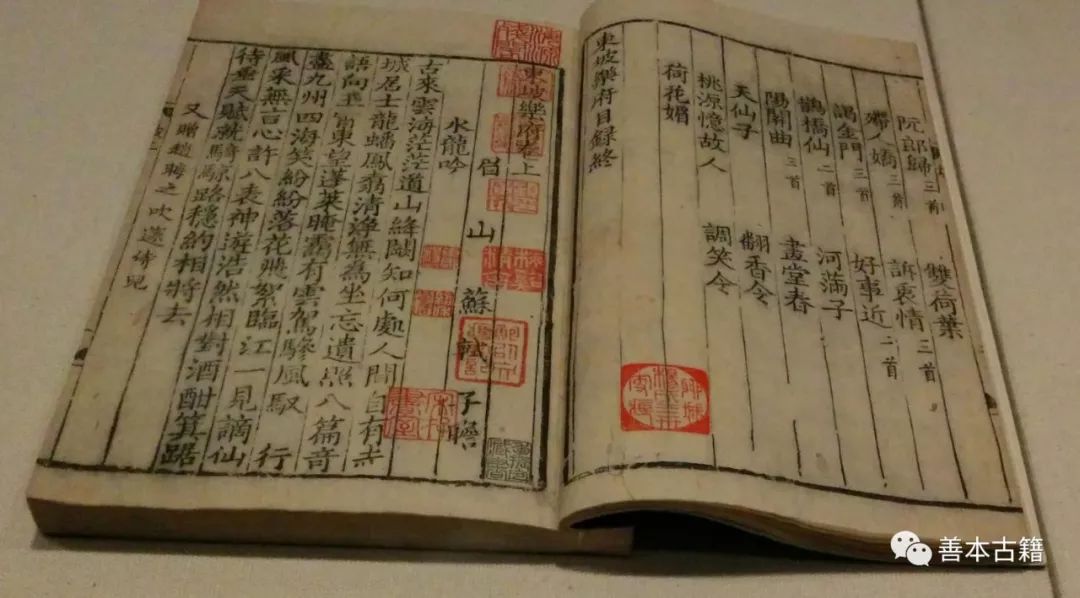 阮郎歸 三首 雙荷葉
殢人嬌 三首 訴衷情 三首
謁金門 三首 好事近 二首
鵲橋仙 二首 河滿子
陽關曲 三首 畫堂春
天仙子 翻香令
桃源憶故人 調笑令
荷花媚
東坡樂府目錄終
東坡樂府卷上
眉山蘇軾子瞻
水龍吟
古來雲海茫茫道山絳闕知何處人間自有赤
城居士龍蟠鳳翥清淨無為坐忘遺照八篇奇
語向玉霄東望蓬萊晻靄有雲駕驂風馭 行
盡九州四海笑紛紛落花飛絮臨江一見謫仙
風采無言心許八表神遊浩然相對酒酣箕踞
待垂天賦就騎鯨路穩約相將去
又贈趙晦之吹篴侍兒
善本古籍